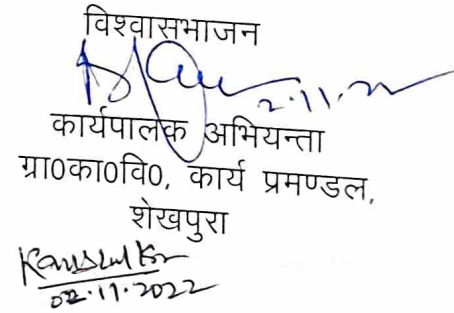 विश्वासभाजन
2.11.22
कार्यपालक अभियन्ता
ग्रा0का0वि0, कार्य प्रमण्डल,
शेखपुरा
02.11.2022